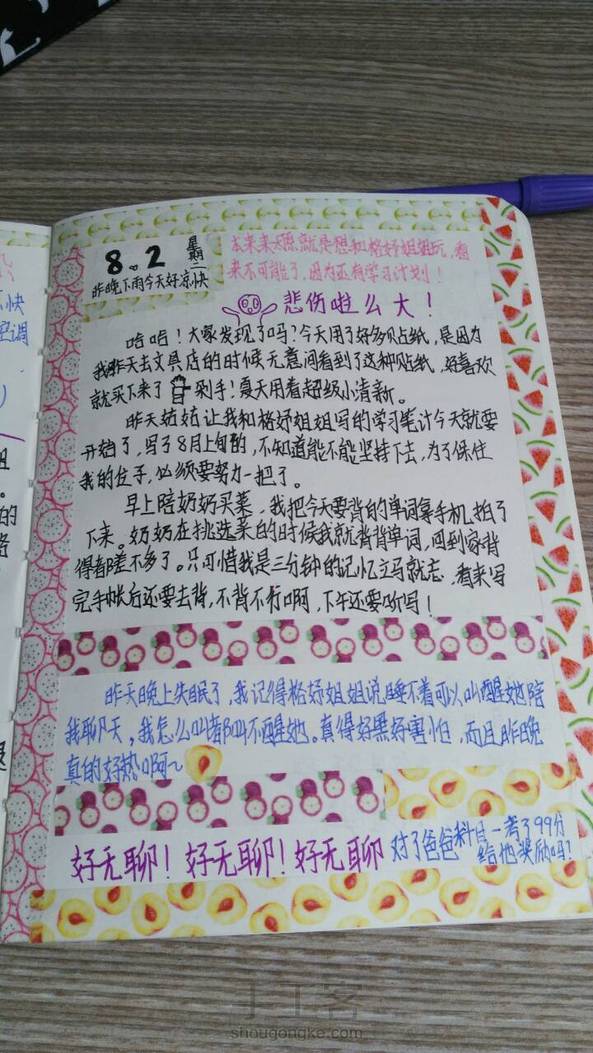 8.2 星期二
昨晚下雨今天好凉快
本来来太原就是想和格妤姐姐玩，看
来不可能了，因为还有学习计划！
悲伤啦么大！
哈哈！大家发现了吗？今天用了好多贴纸，是因为
我昨天去文具店的时候无意间看到了这种贴纸，好喜欢
就买下来了 剁手！夏天用着超级小清新。
昨天姑姑让我和格妤姐姐写的学习笔计今天就要
开始了，写了8月上旬的，不知道能不能坚持下去，为了保住
我的位子，必须要努力一把了。
早上陪奶奶买菜，我把今天要背的单词拿手机拍了
下来。奶奶在挑选菜的时候我就背背单词，回到家背
得都差不多了。只可惜我是三分钟的记忆立马就忘，看来写
完手帐后还要去背，不背不行啊，下午还要听写！
昨天晚上失眠了，我记得格妤姐姐说睡不着可以叫醒她陪
我聊天，我怎么叫都叫不醒她。真得好黑好害怕，而且昨晚
真的好热啊～
好无聊！好无聊！好无聊
对了爸爸科目一考了99分
给他奖励吗！
手工客
shougongke.com